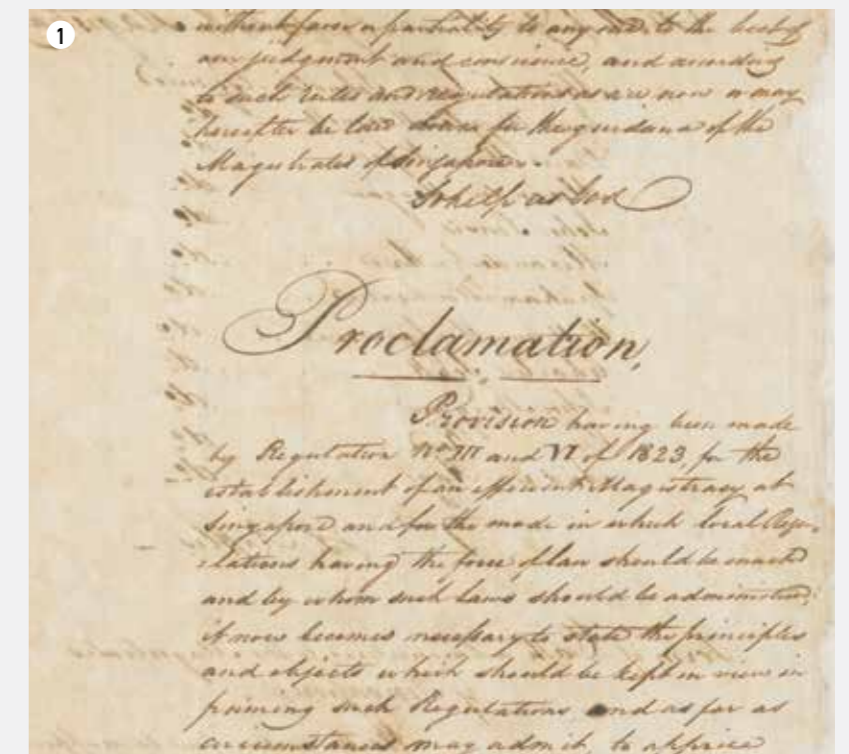 1
without favor or partiality to any one to the best of
our judgment and conscience, and according
to such rules and regulations as are now or may
hereafter be laid down for the guidance of the
Magistrates of Singapore.
So help us God
Proclamation,
Provision having been made
by Regulation No III and VI of 1823, for the
establishment of an efficient Magistracy at
Singapore and for the mode in which local Regu-
lations having the force of law should be enacted
and by whom such Laws should be administered,
it now becomes necessary to state the principles
and objects which should be kept in view in
framing such Regulations and as far as
circumstances may admit, to apprize